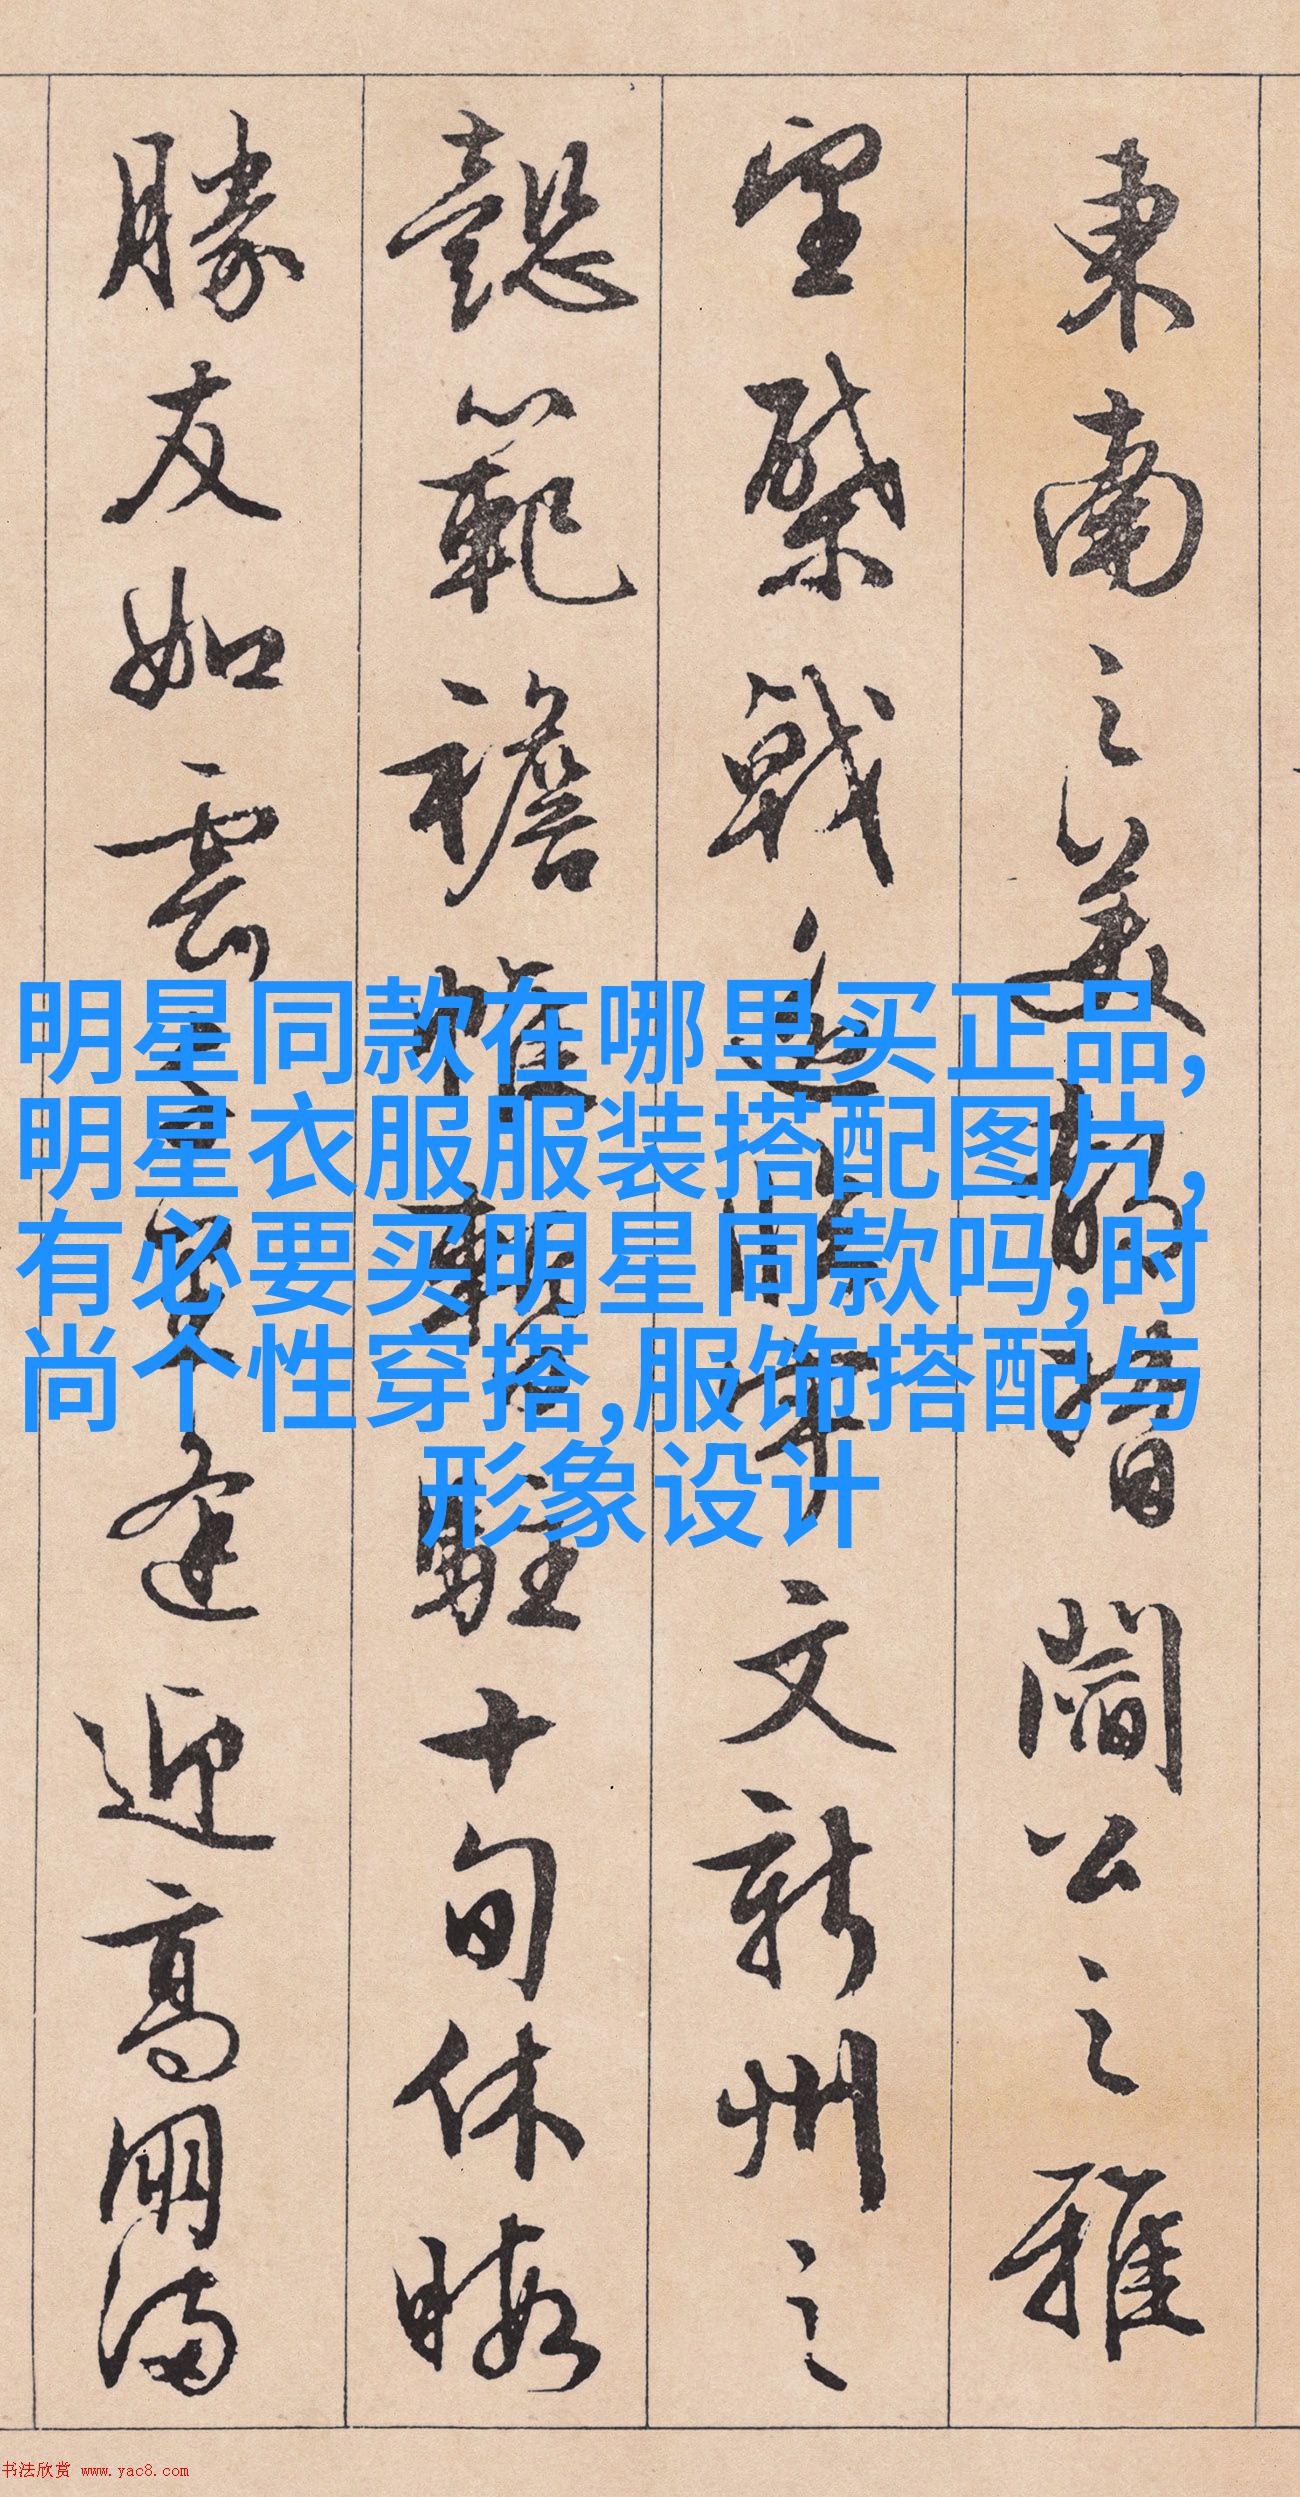 東南之美都督閻公之雅
望棨戟遥臨宇文新州之
懿範襜帷暫駐十旬休暇
勝友如雲千里逢迎高朋滿
明星同款在哪里买正品,
明星衣服服装搭配图片,
有必要买明星同款吗,时
尚个性穿搭,服饰搭配与
形象设计
书法欣赏 www.yac8.com